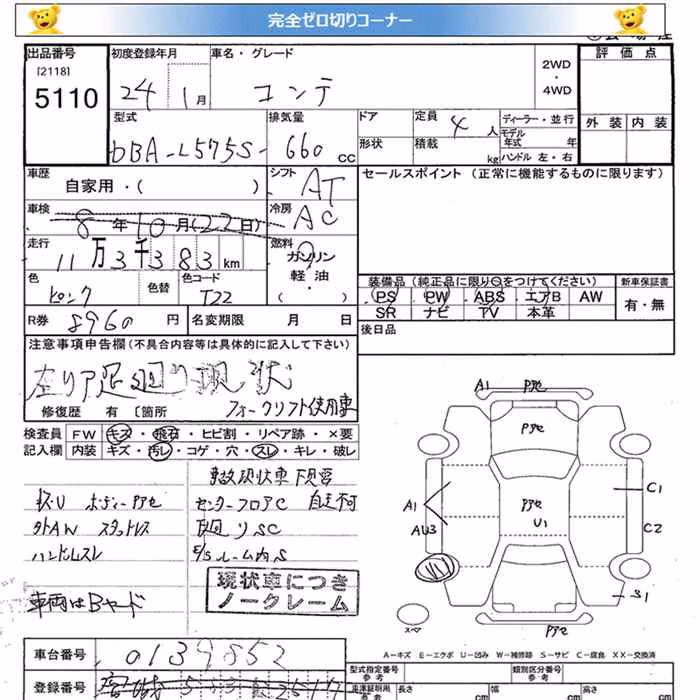 完全ゼロ切りコーナー
出品番号 初度登録年月 車名・グレード 評価点
[2118]
5110 24年1月 コンテ 2WD・4WD
外装 内装
型式 排気量 ドア 定員 4人 ディーラー・並行
DBA-L575S- 660cc 形状 積載 kg モデル年式 年
ハンドル 左・右
車歴 自家用・( ) シフト AT セールスポイント (正常に機能するものに限ります)
車検 8年10月(22日) 冷房 AC
走行 11万3千383km 燃料 ガソリン・軽・油・( )
色 ピンク 色替 色コード T22
装備品 (純正品に限り○をつけてください) 新車保証書
PS PW ABS エアB AW 有・無
SR ナビ TV 本革
R券 8960円 名変期限 月 日 後日品
注意事項申告欄(不具合内容等は具体的に記入して下さい)
左リア足廻り現状
修復歴 有 [箇所 フォークリフト使用車
検査員 FW キズ・飛石・ヒビ割・リペア跡・×要
記入欄 内装 キズ・汚レ・コゲ・穴・スレ・キレ・破レ
事故現状車 下見営
キズU ボディーPアセ センターフロアC 自走不可
外AW スタットレス 下廻りSC
ハンドルスレ F/Sルーム内S
現状車につき
ノークレーム
車両はBヤード
A1 Pアセ
Pアセ
Pアセ
U1
A1
AU3
C1
C2
S1
Pアセ
スペア
A-キズ E-エクボ U-凹み W-補修跡 S-サビ C-腐食 XX-交換済
車台番号 0139852 型式指定番号 類別区分番号
登録番号 車庫証明用参考 長さ cm 幅 cm 高さ cm